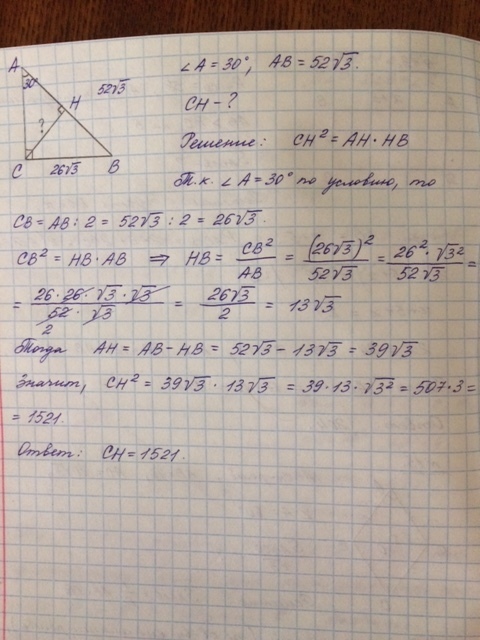 A
30°
∠A = 30°, AB = 52√3.
52√3
H
CH - ?
?
Решение: CH² = AH · HB
C 26√3 B
Т.к. ∠A = 30° по условию, то
CB = AB : 2 = 52√3 : 2 = 26√3.
CB² = HB · AB ⇒ HB = CB²/AB = (26√3)²/52√3 = 26² · √3²/52√3 =
= 26 · 26 · √3 · √3/52 · √3 = 26√3/2 = 13√3
2
Тогда AH = AB - HB = 52√3 - 13√3 = 39√3
Значит, CH² = 39√3 · 13√3 = 39 · 13 · √3² = 507 · 3 =
= 1521.
Ответ: CH = 1521.